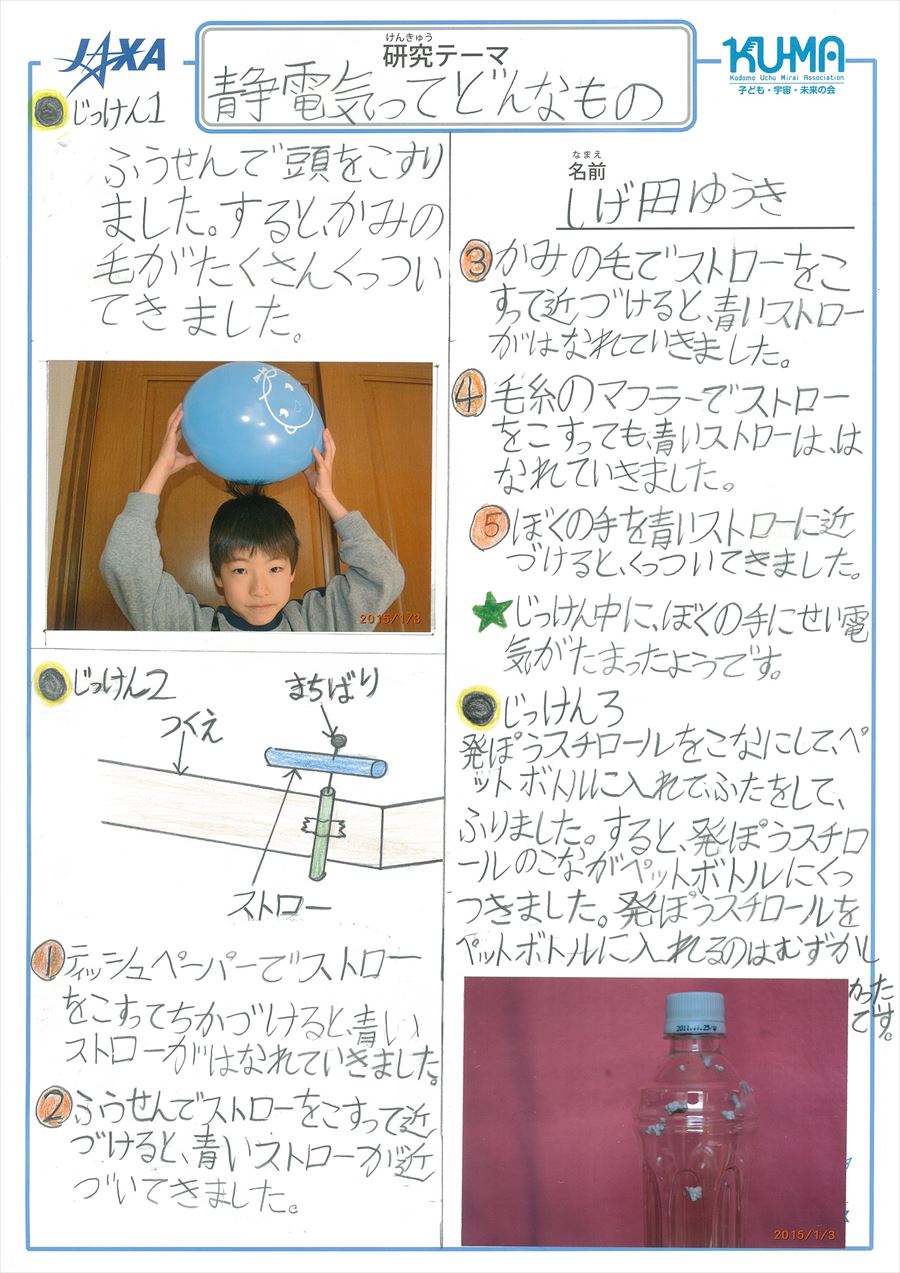 JAXA
けんきゅう
研究テーマ
静電気ってどんなもの
KUMA
Kodomo Uchu Mirai Association
子ども・宇宙・未来の会
じっけん1
ふうせんで頭をこすり
ました。すると、かみの
毛がたくさんくっつい
てきました。
2015/1/3
じっけん2
まちばり
つくえ
ストロー
①ティッシュペーパーでストロー
をこすってちかづけると、青い
ストローがはなれていきました。
②ふうせんでストローをこすって近
づけると、青いストローが近
づいてきました。
なまえ
名前
しげ田ゆうき
③かみの毛でストローをこ
すって近づけると、青いストロー
がはなれていきました。
④毛糸のマフラーでストロー
をこすっても、青いストローは、は
なれていきました。
⑤ぼくの手を青いストローに近
づけると、くっついてきました。
★じっけん中に、ぼくの手にせい電
気がたまったようです。
じっけん3
発ぽうスチロールをこなにして、ペ
ットボトルに入れて、ふたをして、
ふりました。すると、発ぽうスチロ
ールのこながペットボトルにくっ
つきました。発ぽうスチロールを
ペットボトルに入れるのはむずかし
かった
です。
2011.11.25/W
2015/1/3